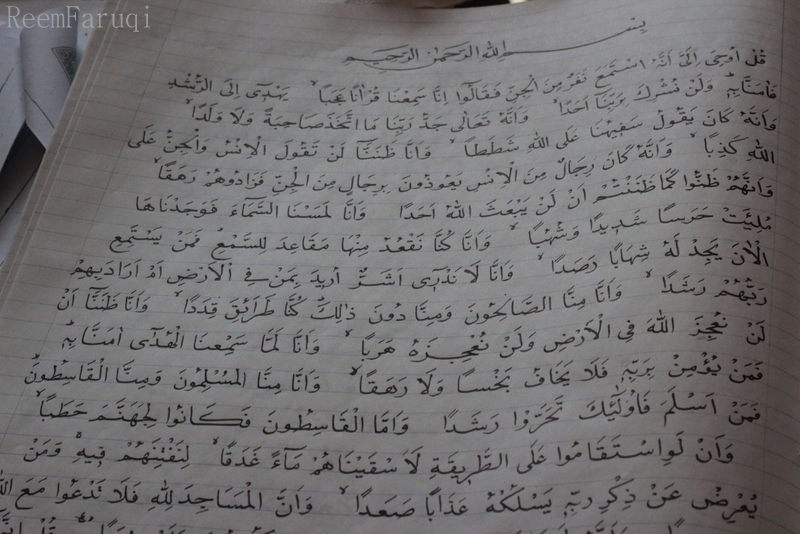 ReemFaruqi
بِسْمِ اللهِ الرَّحْمٰنِ الرَّحِيْمِ
قُلْ اُوْحِىَ اِلَىَّ اَنَّهُ اسْتَمَعَ نَفَرٌ مِّنَ الْجِنِّ فَقَالُوْا اِنَّا سَمِعْنَا قُرْاٰنًا عَجَبًا يَّهْدِىْٓ اِلَى الرُّشْدِ
فَاٰمَنَّا بِهٖ وَلَنْ نُّشْرِكَ بِرَبِّنَآ اَحَدًا وَّاَنَّهٗ تَعٰلٰى جَدُّ رَبِّنَا مَا اتَّخَذَ صَاحِبَةً وَّلَا وَلَدًا
وَّاَنَّهٗ كَانَ يَقُوْلُ سَفِيْهُنَا عَلَى اللهِ شَطَطًا وَّاَنَّا ظَنَنَّآ اَنْ لَّنْ تَقُوْلَ الْاِنْسُ وَالْجِنُّ عَلَى
اللهِ كَذِبًا وَّاَنَّهٗ كَانَ رِجَالٌ مِّنَ الْاِنْسِ يَعُوْذُوْنَ بِرِجَالٍ مِّنَ الْجِنِّ فَزَادُوْهُمْ رَهَقًا
وَّاَنَّهُمْ ظَنُّوْا كَمَا ظَنَنْتُمْ اَنْ لَّنْ يَّبْعَثَ اللهُ اَحَدًا وَّاَنَّا لَمَسْنَا السَّمَآءَ فَوَجَدْنٰهَا
مُلِئَتْ حَرَسًا شَدِيْدًا وَّشُهُبًا وَّاَنَّا كُنَّا نَقْعُدُ مِنْهَا مَقَاعِدَ لِلسَّمْعِ فَمَنْ يَّسْتَمِعِ
الْاٰنَ يَجِدْ لَهٗ شِهَابًا رَّصَدًا وَّاَنَّا لَا نَدْرِىْٓ اَشَرٌّ اُرِيْدَ بِمَنْ فِى الْاَرْضِ اَمْ اَرَادَ بِهِمْ
رَبُّهُمْ رَشَدًا وَّاَنَّا مِنَّا الصَّالِحُوْنَ وَمِنَّا دُوْنَ ذٰلِكَ كُنَّا طَرَآئِقَ قِدَدًا وَّاَنَّا ظَنَنَّآ اَنْ
لَّنْ نُّعْجِزَ اللهَ فِى الْاَرْضِ وَلَنْ نُّعْجِزَهٗ هَرَبًا وَّاَنَّا لَمَّا سَمِعْنَا الْهُدٰىٓ اٰمَنَّا بِهٖ
فَمَنْ يُّؤْمِنْ بِرَبِّهٖ فَلَا يَخَافُ بَخْسًا وَّلَا رَهَقًا وَّاَنَّا مِنَّا الْمُسْلِمُوْنَ وَمِنَّا الْقَاسِطُوْنَ
فَمَنْ اَسْلَمَ فَاُولٰٓئِكَ تَحَرَّوْا رَشَدًا وَاَمَّا الْقَاسِطُوْنَ فَكَانُوْا لِجَهَنَّمَ حَطَبًا
وَّاَنْ لَّوِ اسْتَقَامُوْا عَلَى الطَّرِيْقَةِ لَاَسْقَيْنَاهُمْ مَّآءً غَدَقًا لِّنَفْتِنَهُمْ فِيْهِ وَمَنْ
يُّعْرِضْ عَنْ ذِكْرِ رَبِّهٖ يَسْلُكْهُ عَذَابًا صَعَدًا وَّاَنَّ الْمَسَاجِدَ لِلّٰهِ فَلَا تَدْعُوْا مَعَ